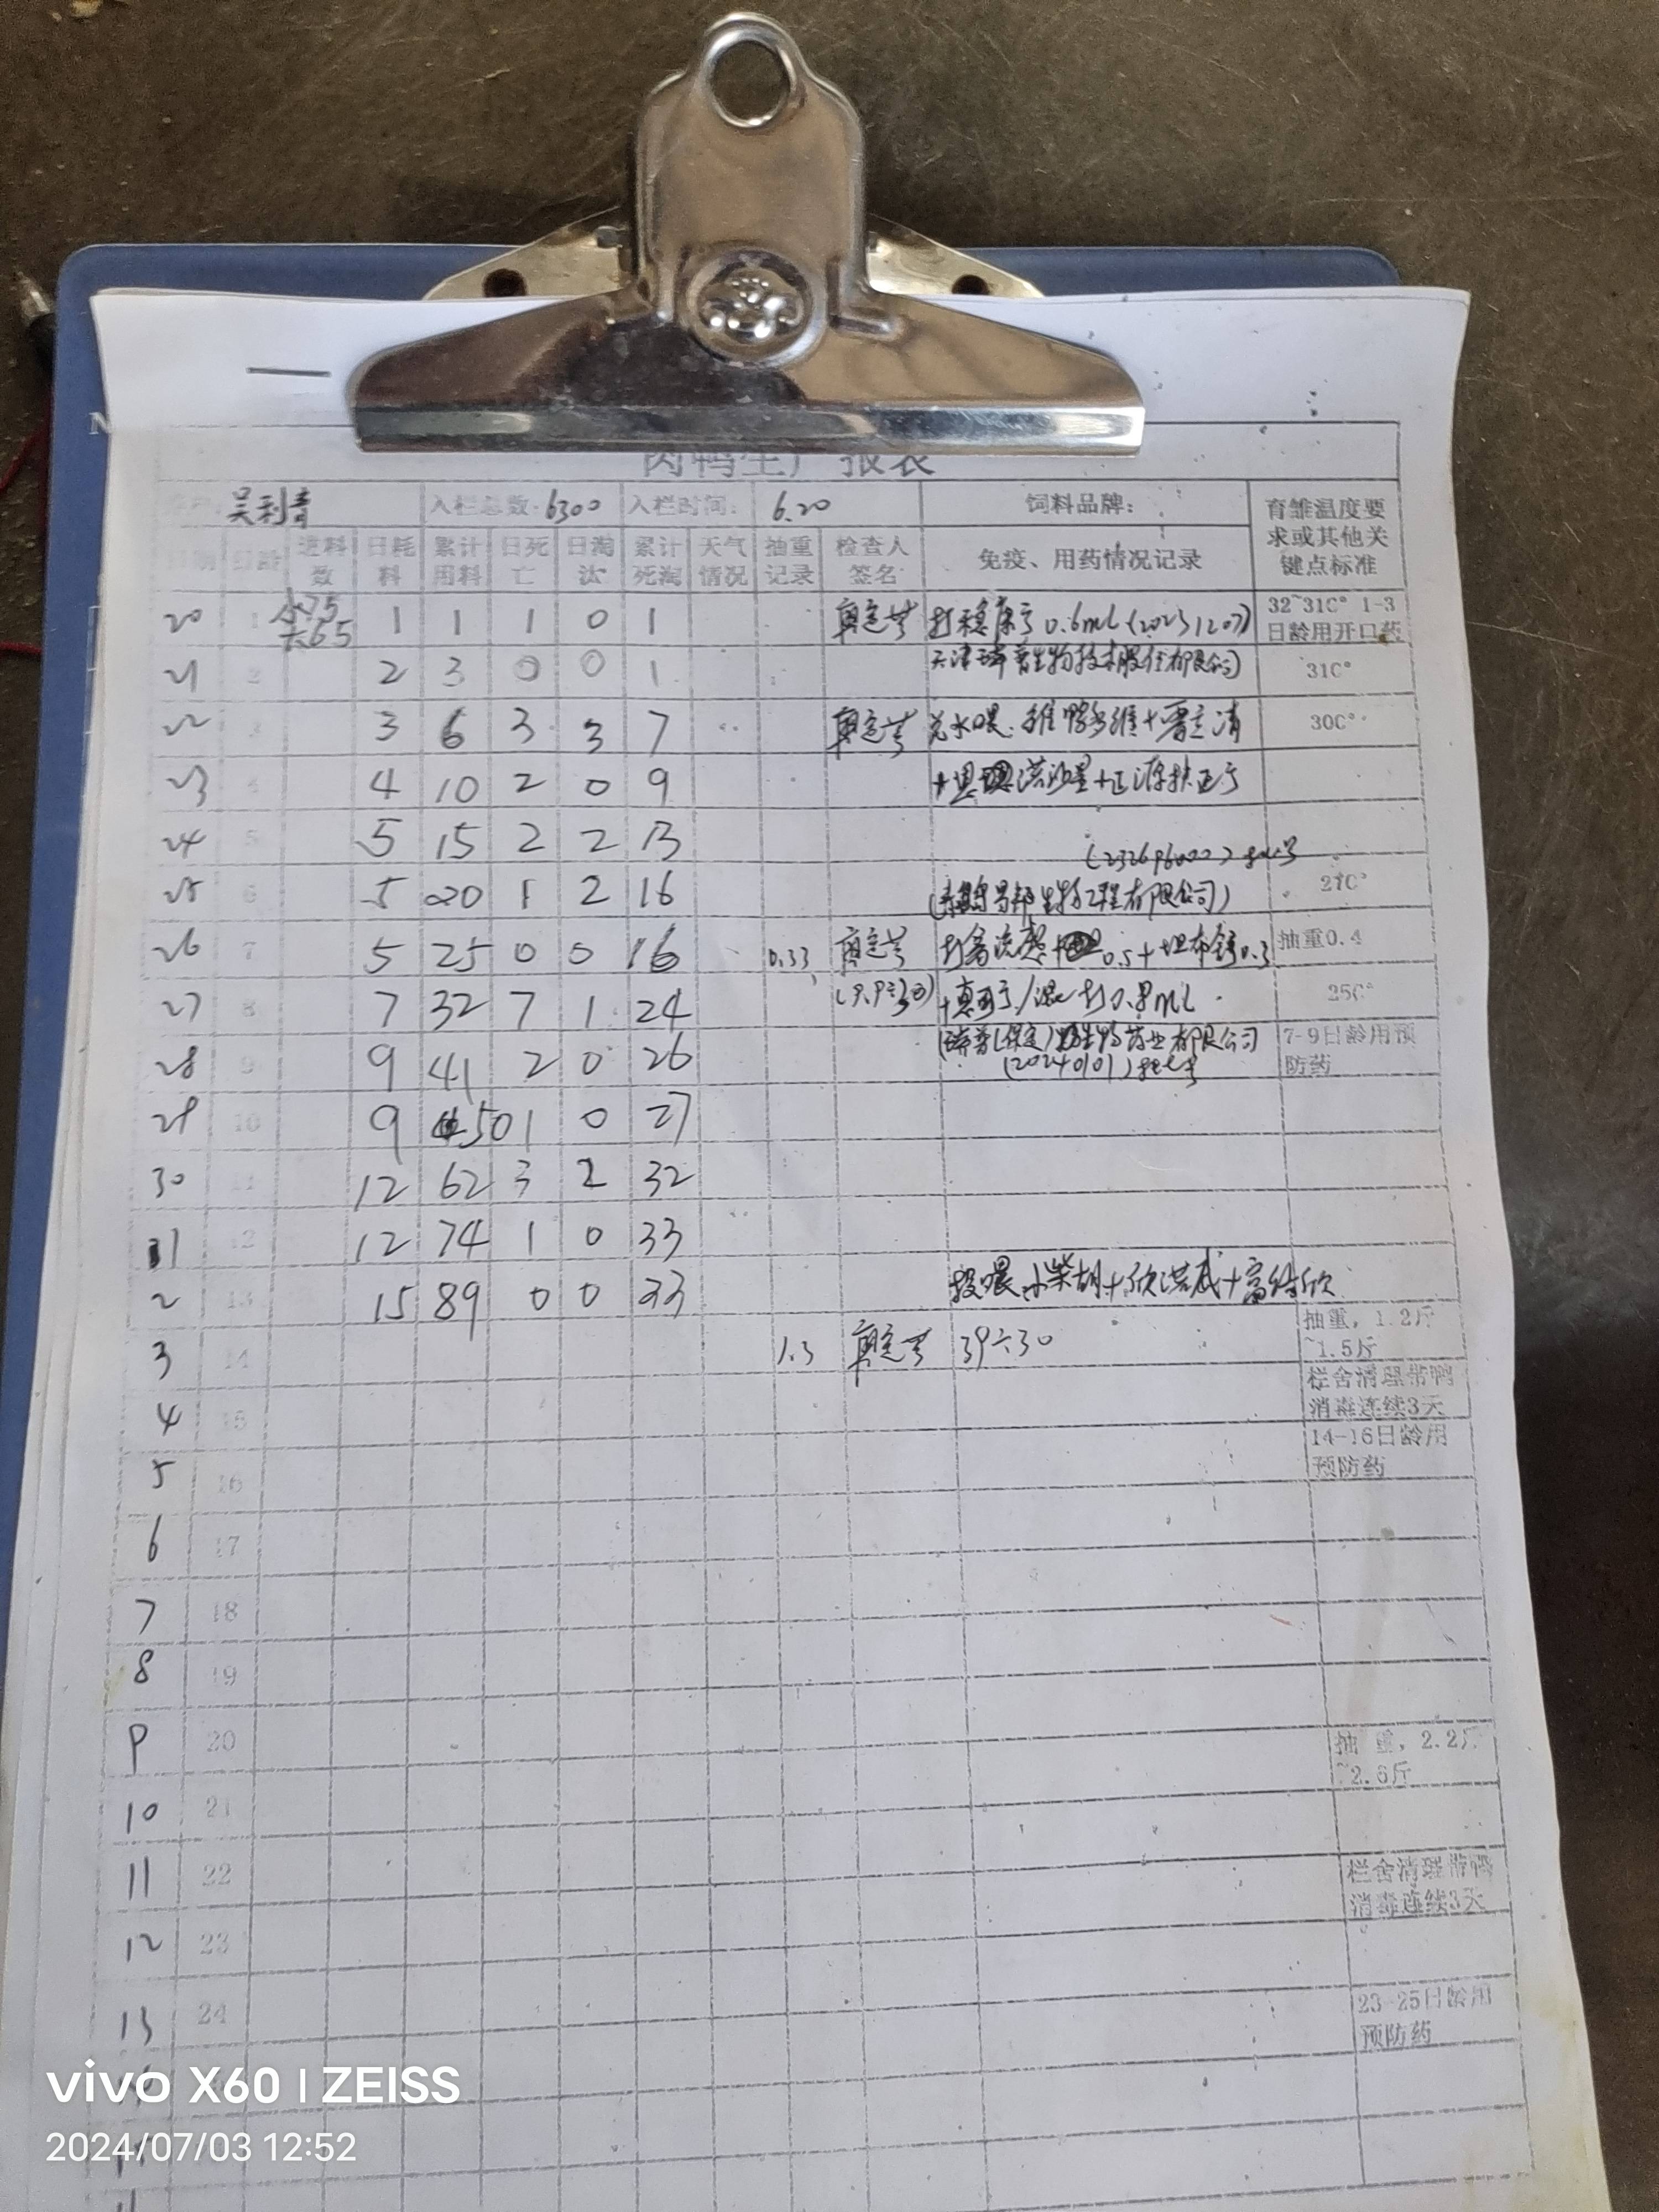 肉鸭生产报表
吴利青 入栏总数: 6300 入栏时间: 6.20 饲料品牌: 育雏温度要求或其他关键点标准
日期 日龄 进料数 日耗料 累计用料 日死亡 日淘汰 累计死淘 天气情况 抽重记录 检查人签名 免疫、用药情况记录
20 1 小75 大65 1 1 1 0 1 0.6ml (20231207) 32~31C° 1-3日龄用开口药
21 2 2 3 0 0 1 天津瑞普生物技术股份有限公司 31C°
22 3 3 6 3 3 7 兑水喂. 30C°
23 4 4 10 2 0 9
24 5 5 15 2 2 13
25 6 5 20 1 2 16 生物工程有限公司) 27C°
26 7 5 25 0 0 16 0.33 打禽流感 0.5+ 0.3 抽重0.4
27 8 7 32 7 1 24 (9.9÷30) 打0.8ml 25C°
28 9 9 41 2 0 26 瑞普(保定)生物药业有限公司 (20240101)批号 7-9日龄用预防药
29 10 9 50 1 0 27
30 11 12 62 3 2 32
1 12 12 74 1 0 33
2 13 15 89 0 0 33 投喂小柴胡+
3 14 1.3 39÷30 抽重, 1.2斤~1.5斤
4 15 栏舍清理带鸭消毒连续3天
5 16 14-16日龄用预防药
6 17
7 18
8 19
9 20 抽重, 2.2斤~2.6斤
10 21
11 22 栏舍清理带鸭消毒连续3天
12 23
13 24 23-25日龄用预防药
vivo X60 | ZEISS
2024/07/03 12:52